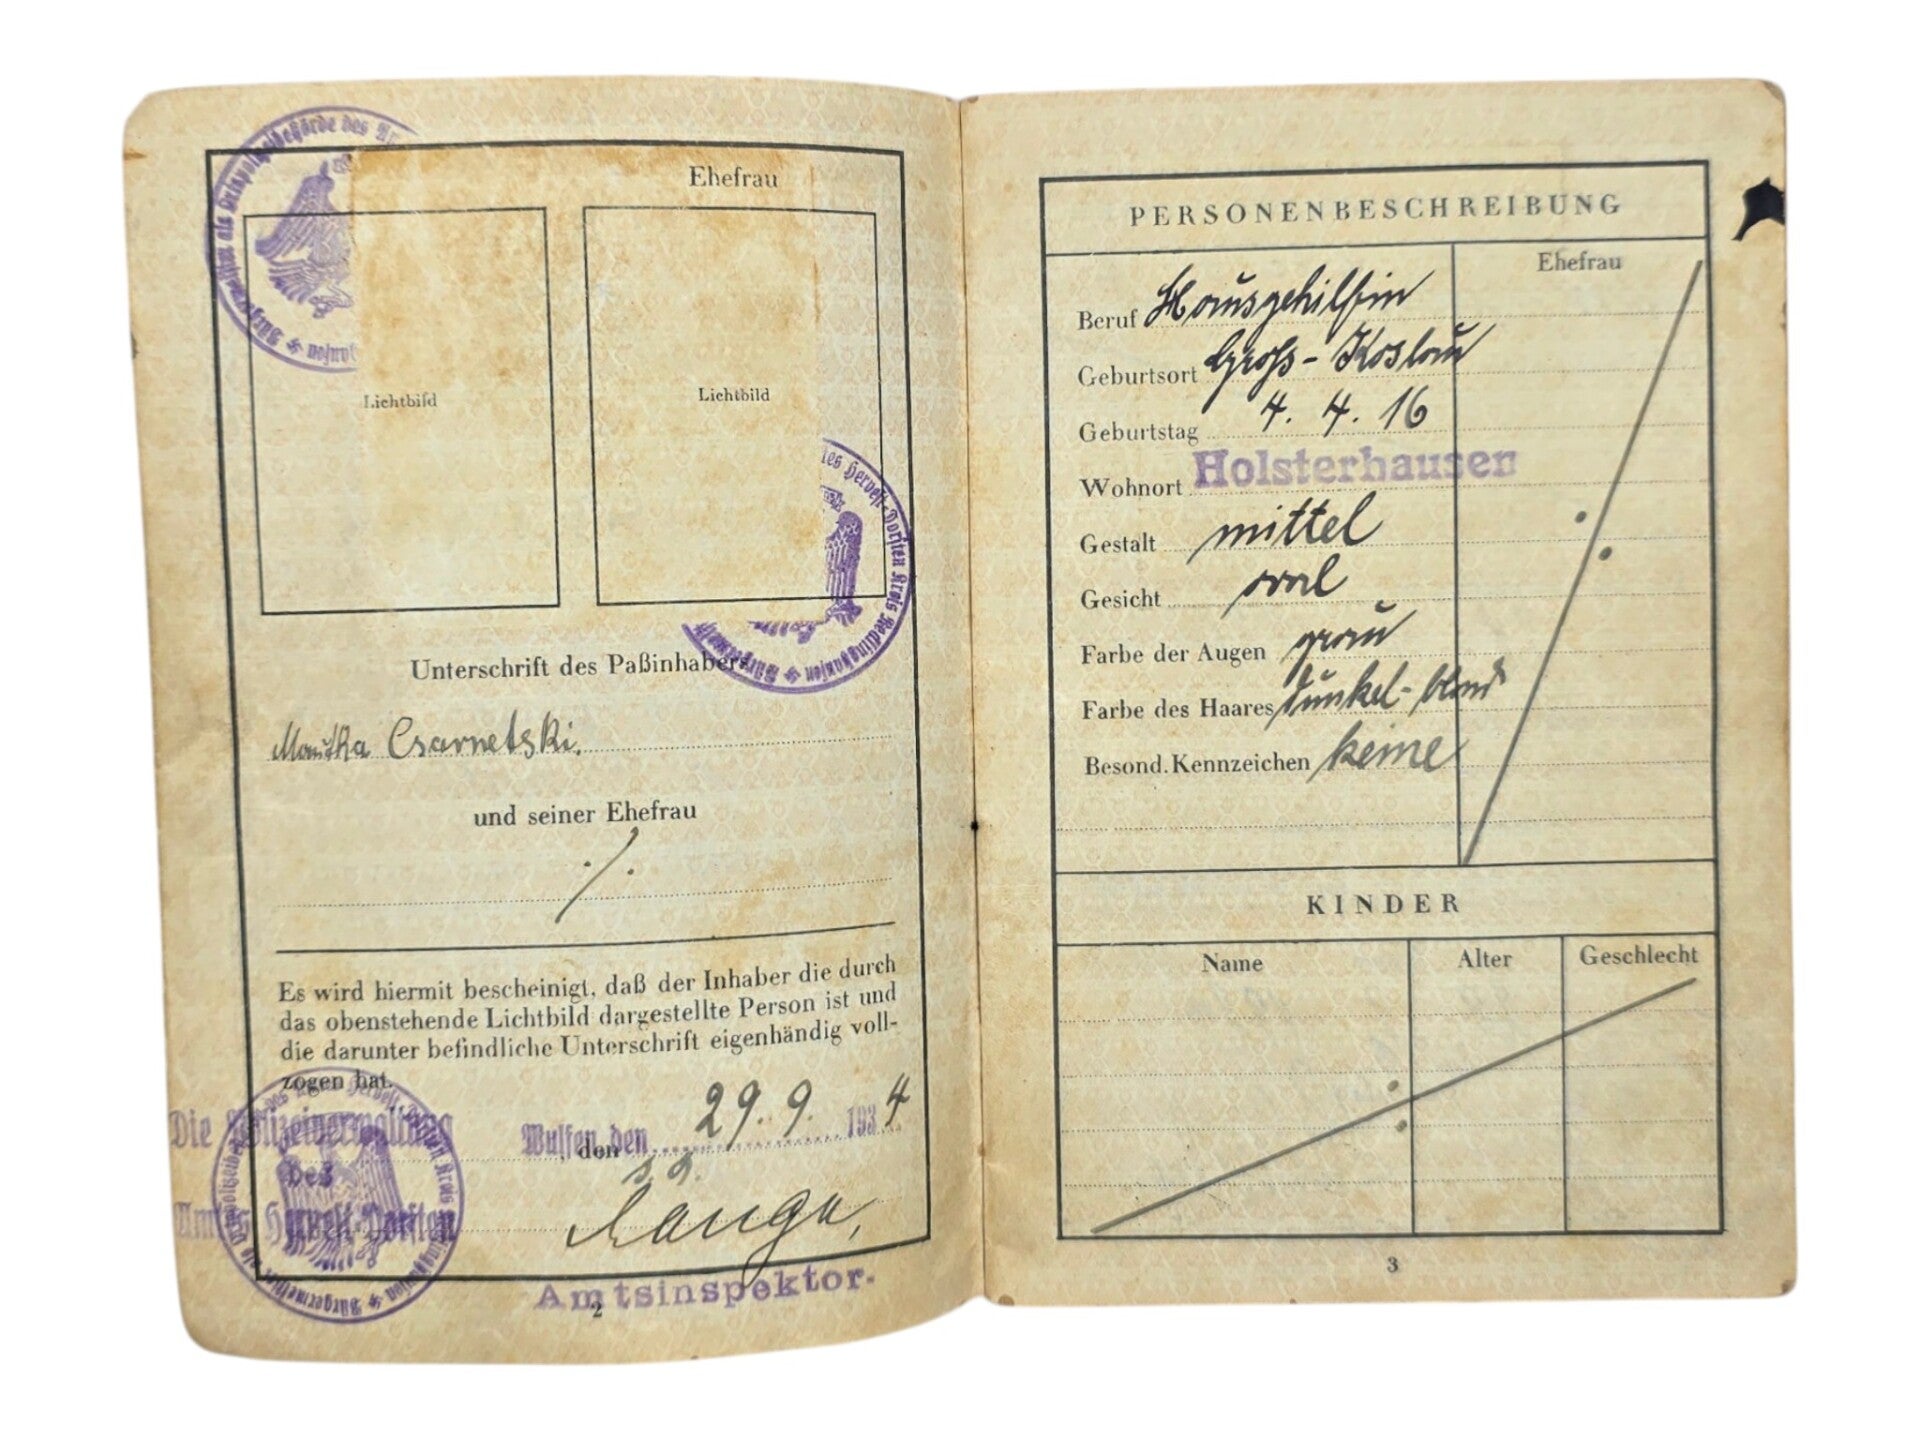 Ehefrau
Lichtbild
Lichtbild
Unterschrift des Paßinhabers
Csarnetski.
und seiner Ehefrau
./.
Es wird hiermit bescheinigt, daß der Inhaber die durch
das obenstehende Lichtbild dargestellte Person ist und
die darunter befindliche Unterschrift eigenhändig voll-
zogen hat.
Die Polizeiverwaltung
des
Amtes Hervest-Dorsten
Wulfen, den 29. 9. 1934
, den
Amtsinspektor.
2
PERSONENBESCHREIBUNG
Ehefrau
Beruf Hausgehilfin
Geburtsort Groß-Koslau
Geburtstag 4. 4. 16
Wohnort Holsterhausen
Gestalt mittel
Gesicht oval
Farbe der Augen grau
Farbe des Haares dunkel-blond
Besond. Kennzeichen keine
KINDER
Name Alter Geschlecht
3